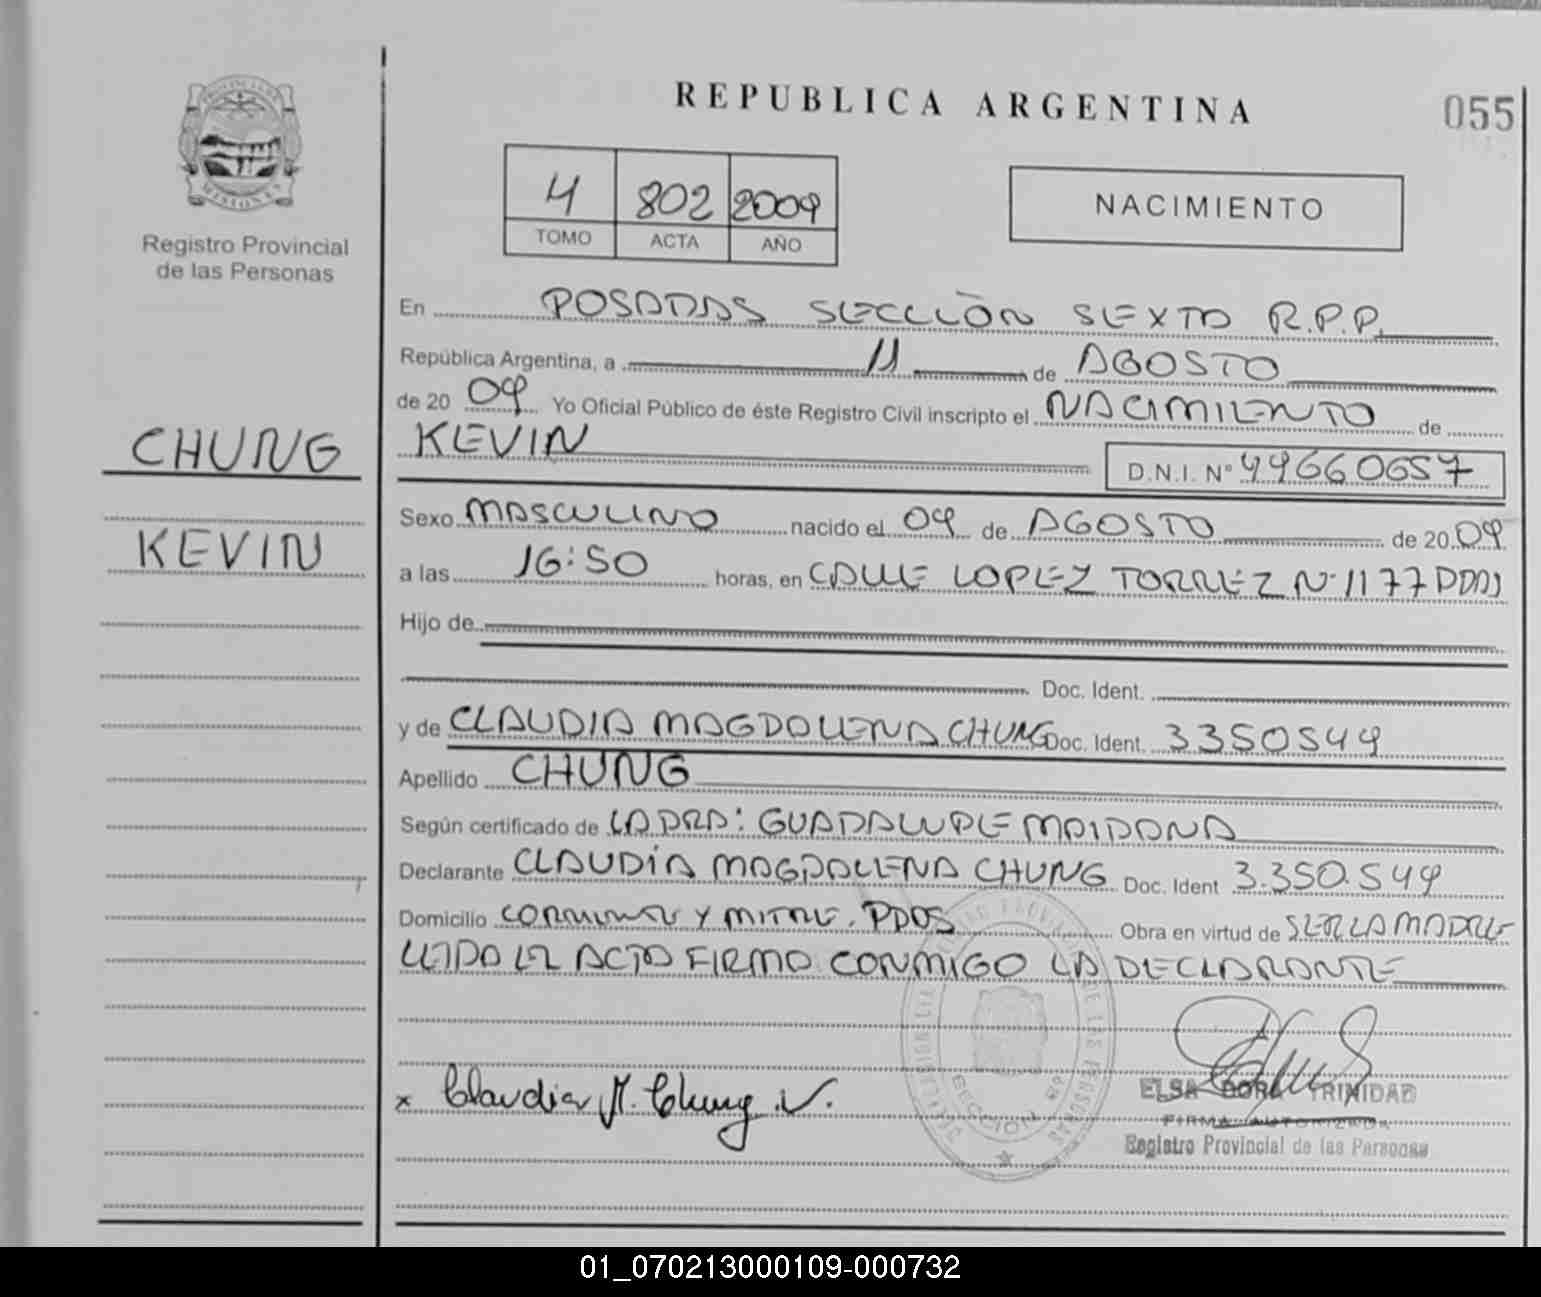 REPUBLICA ARGENTINA
055
PROVINCIA DE
MISIONES
Registro Provincial
de las Personas
4 802 2009
TOMO ACTA AÑO
NACIMIENTO
En POSADAS SECCIÒN SEXTA R.P.P.
República Argentina, a 11 de AGOSTO
de 20 09 Yo Oficial Público de éste Registro Civil inscripto el NACIMIENTO de
CHUNG
KEVIN
D.N.I. Nº 49660657
KEVIN
Sexo MASCULINO nacido el 09 de AGOSTO de 20 09
a las 16:50 horas, en CALLE LOPEZ TORREZ Nº 1177 PDAS
Hijo de
Doc. Ident.
y de CLAUDIA MAGDALENA CHUNG Doc. Ident. 3350549
Apellido CHUNG
Según certificado de LA DRA: GUADALUPE MAIDANA
Declarante CLAUDIA MAGDALENA CHUNG Doc. Ident 3.350.549
Domicilio CORRIENTES Y MITRE. PDAS Obra en virtud de SER LA MADRE
LEIDA EL ACTA FIRMA CONMIGO LA DECLARANTE
x Claudia M. Chung .V.
SECCION 6ª
ELSA DORA TRINIDAD
FIRMA AUTORIZADA
Registro Provincial de las Personas
01_070213000109-000732